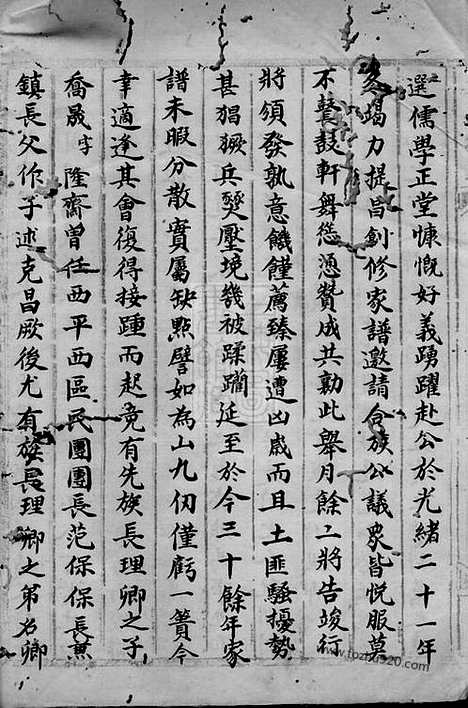 選儒學正堂慷慨好義踴躍赴公於光緒二十一年
竭力提昌創修家譜邀請合族公議眾皆悅服莫
不鼙鼓軒舞慫慂贊成共勷此舉月餘工將告竣行
將頒發孰意饑饉薦臻屢遭凶歲而且土匪騷擾勢
甚猖獗兵燹壓境幾被蹂躪延至於今三十餘年家
譜未暇分散實屬缺點譬如為山九仞僅虧一簣今
幸適逢其會復得接踵而起竟有先族長理卿之子
喬晟字隆齋曾任西平西區民團團長范保保長兼
鎮長父作子述克昌厥後尤有族長理卿之弟名卿
www.fozhu920.com